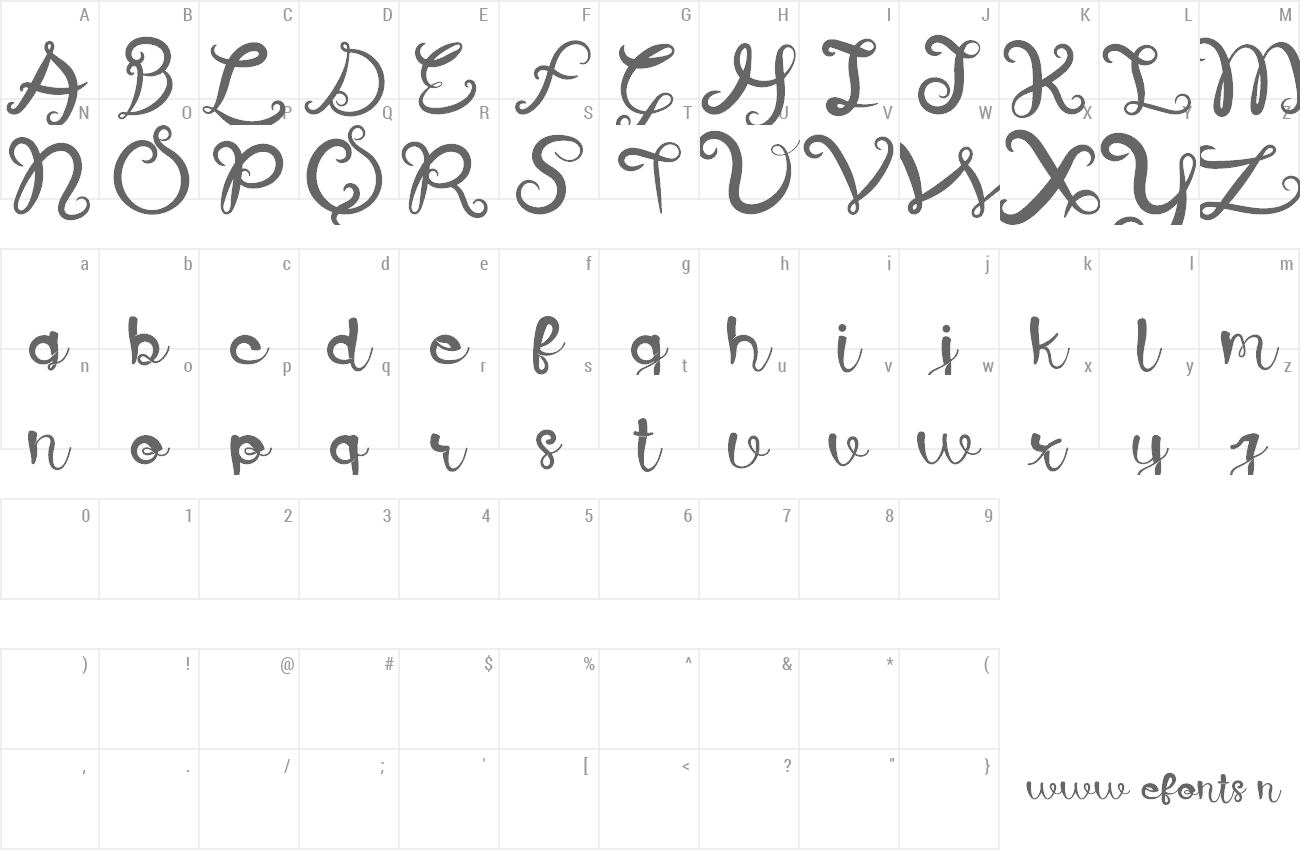 A B C D E F G H I J K L M
A B C D E F G H I J K L M
N O P Q R S T U V W X Y Z
N O P Q R S T U V W X Y Z
a b c d e f g h i j k l m
a b c d e f g h i j k l m
n o p q r s t u v w x y z
n o p q r s t u v w x y z
0 1 2 3 4 5 6 7 8 9
) ! @ # $ % ^ & * (
, . / ; ' [ < ? " }
www efonts n